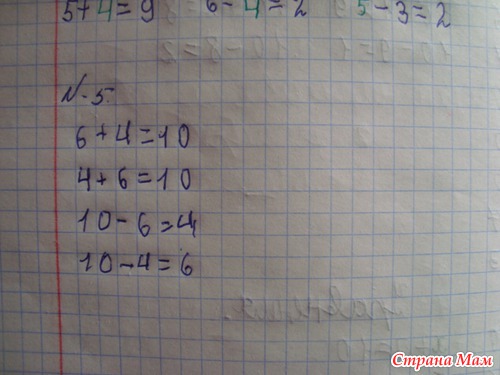 5+4=9 6-4=2 5-3=2
№ 5.
6+4=10
4+6=10
10-6=4
10-4=6
Страна Мам